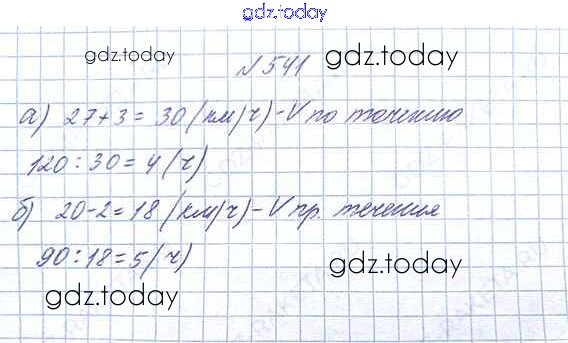 gdz.today
gdz.today
№ 541 gdz.today
а) 27+3=30 (км/ч)-V по течению
120:30=4 (ч)
б) 20-2=18 (км/ч)-V пр. течения
90:18=5 (ч)
gdz.today
gdz.today